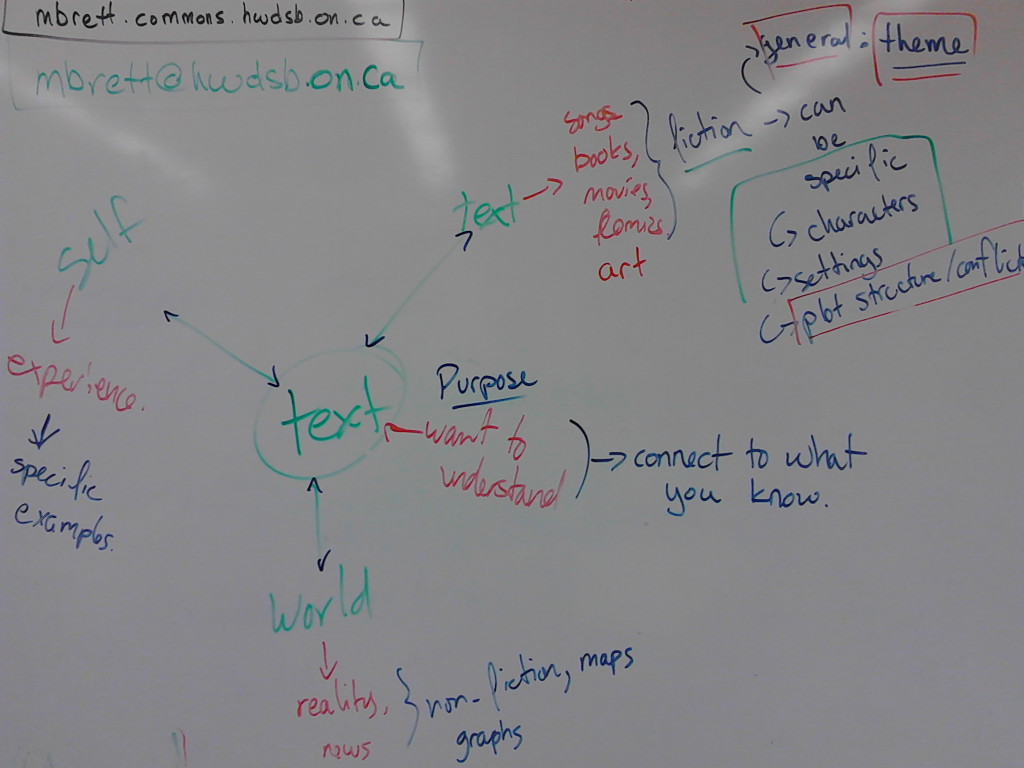 mbrett.commons.hwdsb.on.ca
mbrett@hwdsb.on.ca
general: theme
songs
books,
movies,
comics,
art
fiction → can
be
specific
↳ characters
↳ settings
↳ plot structure/conflict
text →
self
experience.
specific
examples.
text
Purpose
want to
understand
→ connect to what
you know.
world
reality,
news
non-fiction, maps
graphs